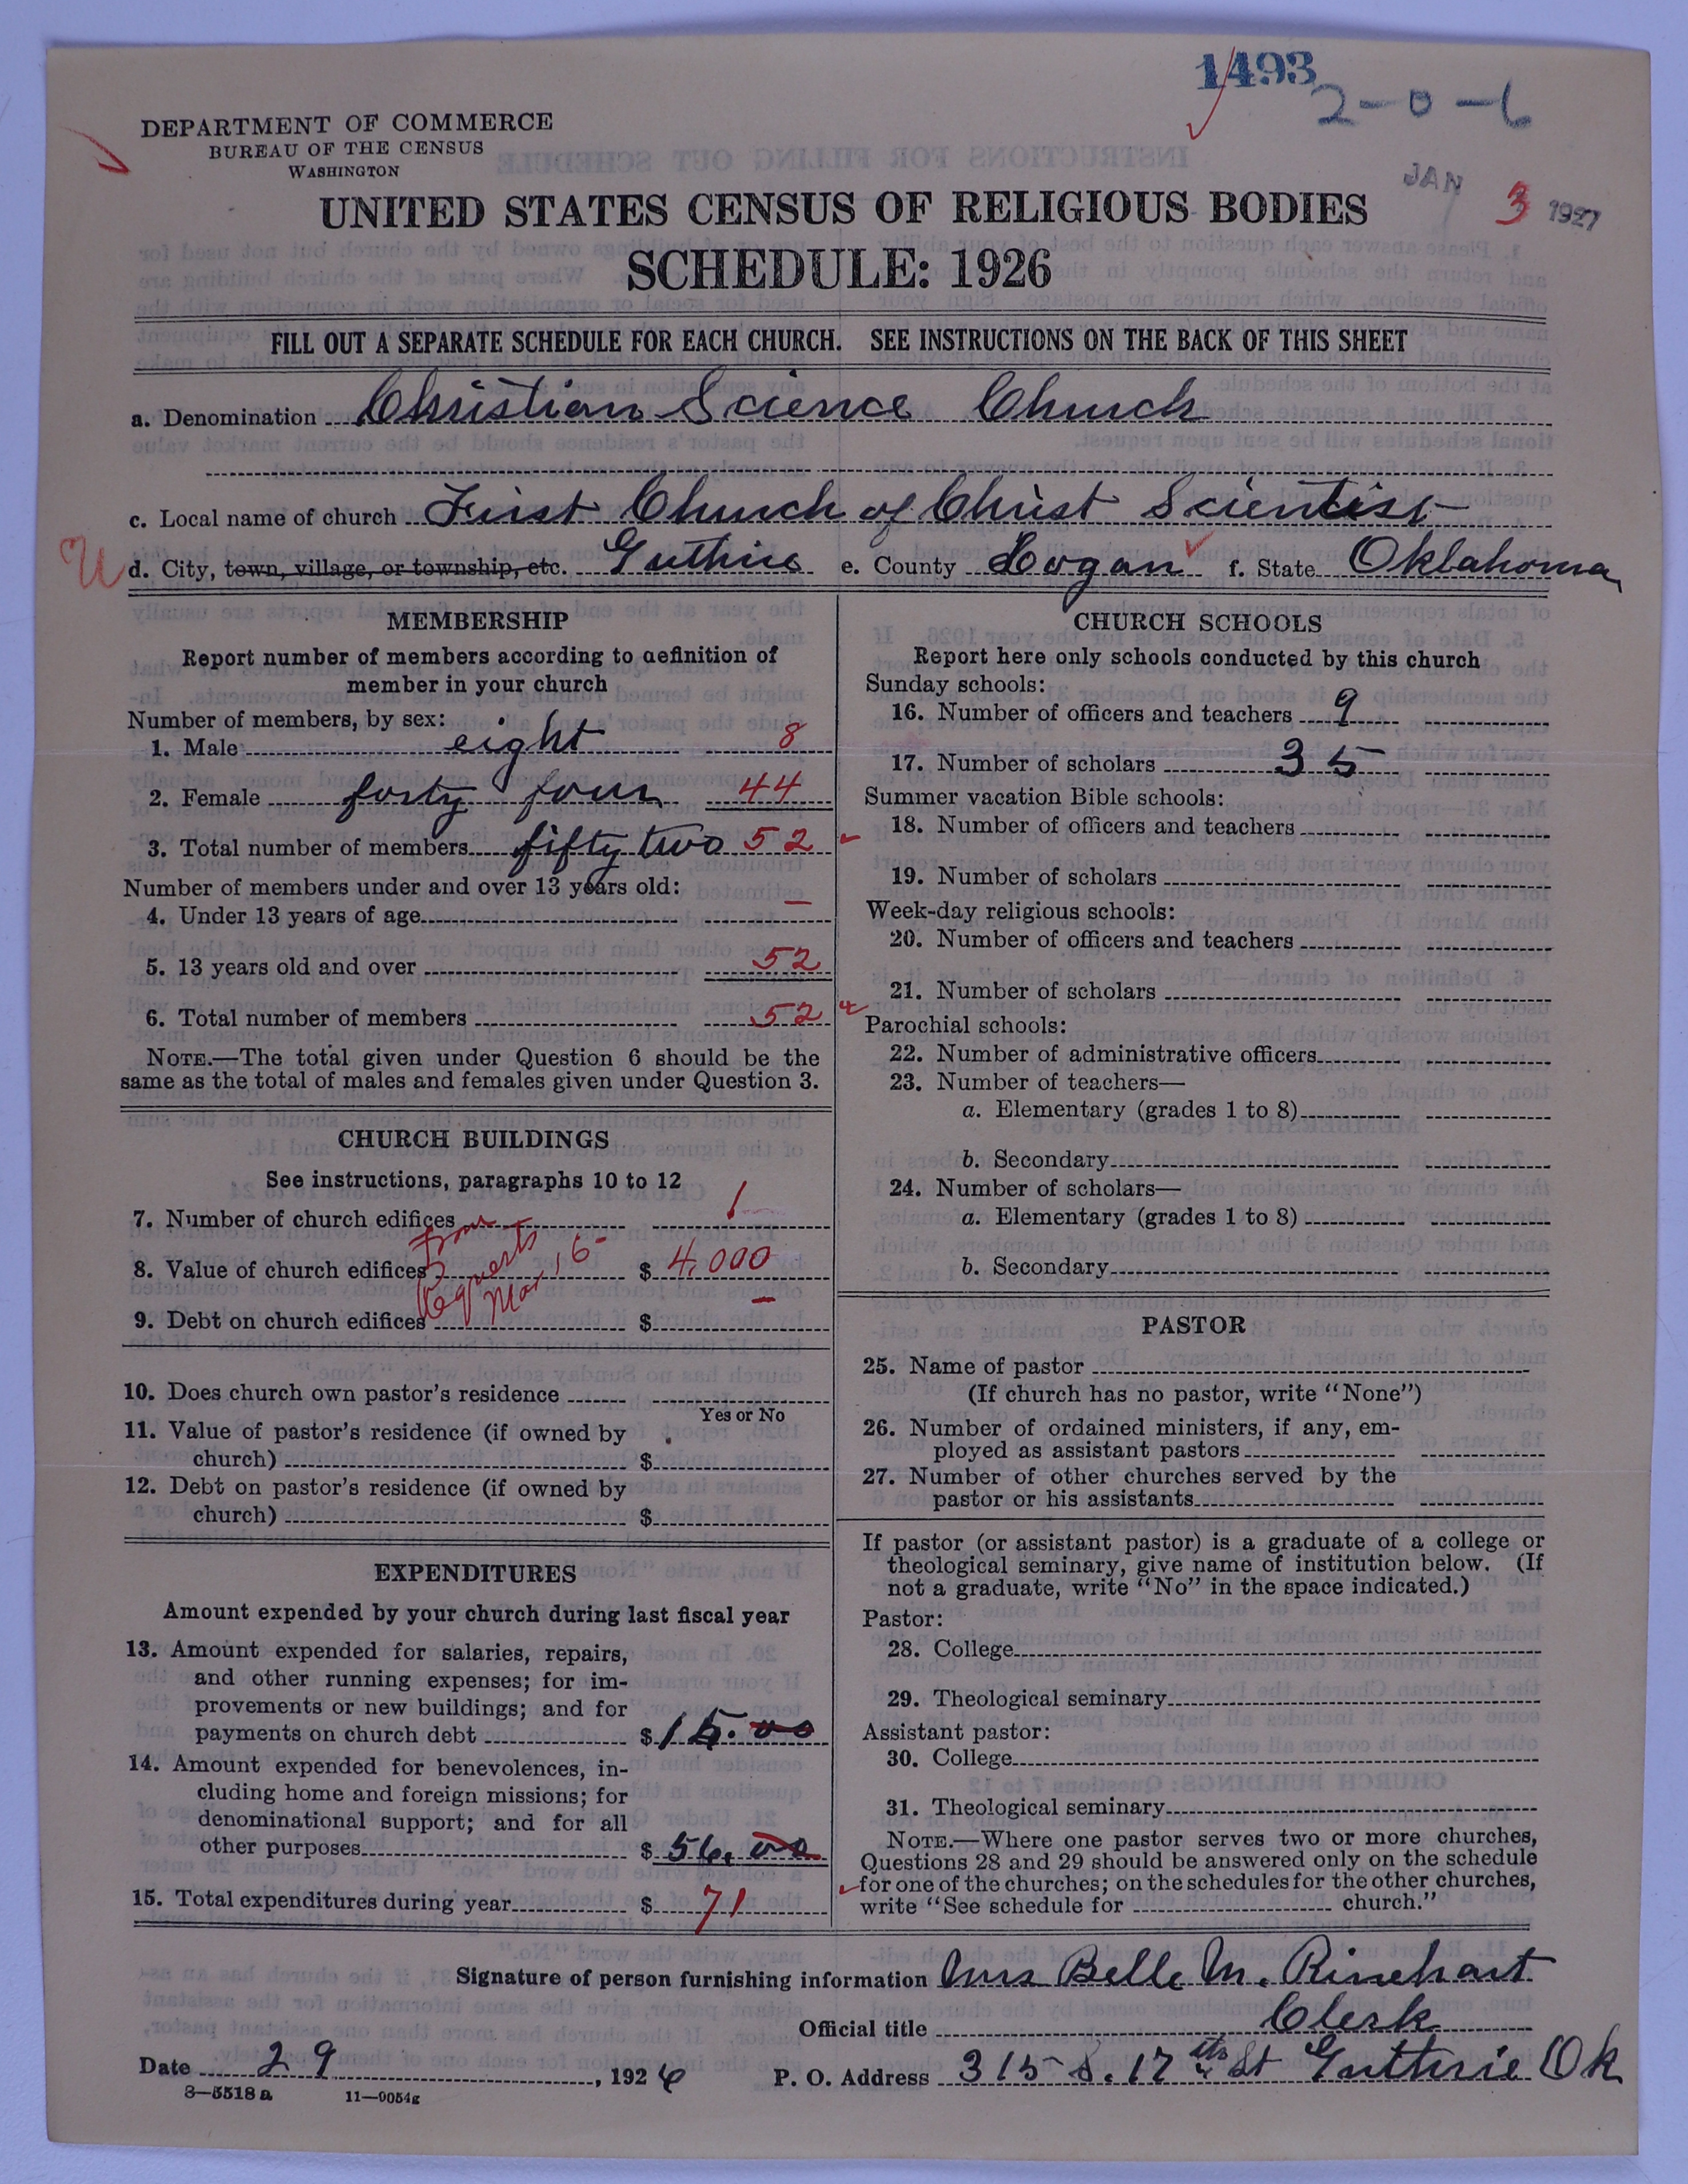 1493
2-0-6
DEPARTMENT OF COMMERCE
BUREAU OF THE CENSUS
WASHINGTON
JAN 3 1927
UNITED STATES CENSUS OF RELIGIOUS BODIES
SCHEDULE: 1926
FILL OUT A SEPARATE SCHEDULE FOR EACH CHURCH. SEE INSTRUCTIONS ON THE BACK OF THIS SHEET
a. Denomination Christian Science Church
c. Local name of church First Church of Christ Scientist
U d. City, town, village, or township, etc. Guthrie e. County Logan f. State Oklahoma
MEMBERSHIP
Report number of members according to definition of
member in your church
Number of members, by sex:
1. Male eight 8
2. Female forty four 44
3. Total number of members fifty two 52
Number of members under and over 13 years old:
4. Under 13 years of age —
5. 13 years old and over 52
6. Total number of members 52
NOTE.—The total given under Question 6 should be the
same as the total of males and females given under Question 3.
CHURCH BUILDINGS
See instructions, paragraphs 10 to 12
7. Number of church edifices 1
from
8. Value of church edifices $ 4,000
9. Debt on church edifices $ —
10. Does church own pastor's residence
Yes or No
11. Value of pastor's residence (if owned by
church) $
12. Debt on pastor's residence (if owned by
church) $
EXPENDITURES
Amount expended by your church during last fiscal year
13. Amount expended for salaries, repairs,
and other running expenses; for im-
provements or new buildings; and for
payments on church debt $ 15.00
14. Amount expended for benevolences, in-
cluding home and foreign missions; for
denominational support; and for all
other purposes $ 56.00
15. Total expenditures during year $ 71
CHURCH SCHOOLS
Report here only schools conducted by this church
Sunday schools:
16. Number of officers and teachers 9
17. Number of scholars 35
Summer vacation Bible schools:
18. Number of officers and teachers
19. Number of scholars
Week-day religious schools:
20. Number of officers and teachers
21. Number of scholars
Parochial schools:
22. Number of administrative officers
23. Number of teachers—
a. Elementary (grades 1 to 8)
b. Secondary
24. Number of scholars—
a. Elementary (grades 1 to 8)
b. Secondary
PASTOR
25. Name of pastor
(If church has no pastor, write "None")
26. Number of ordained ministers, if any, em-
ployed as assistant pastors
27. Number of other churches served by the
pastor or his assistants
If pastor (or assistant pastor) is a graduate of a college or
theological seminary, give name of institution below. (If
not a graduate, write "No" in the space indicated.)
Pastor:
28. College
29. Theological seminary
Assistant pastor:
30. College
31. Theological seminary
NOTE.—Where one pastor serves two or more churches,
Questions 28 and 29 should be answered only on the schedule
for one of the churches; on the schedules for the other churches,
write "See schedule for church."
Signature of person furnishing information Mrs Belle M. Rinehart
Official title Clerk
Date 29, 1926 P. O. Address 315 S. 17th St Guthrie Ok
8—5518a 11—9054g